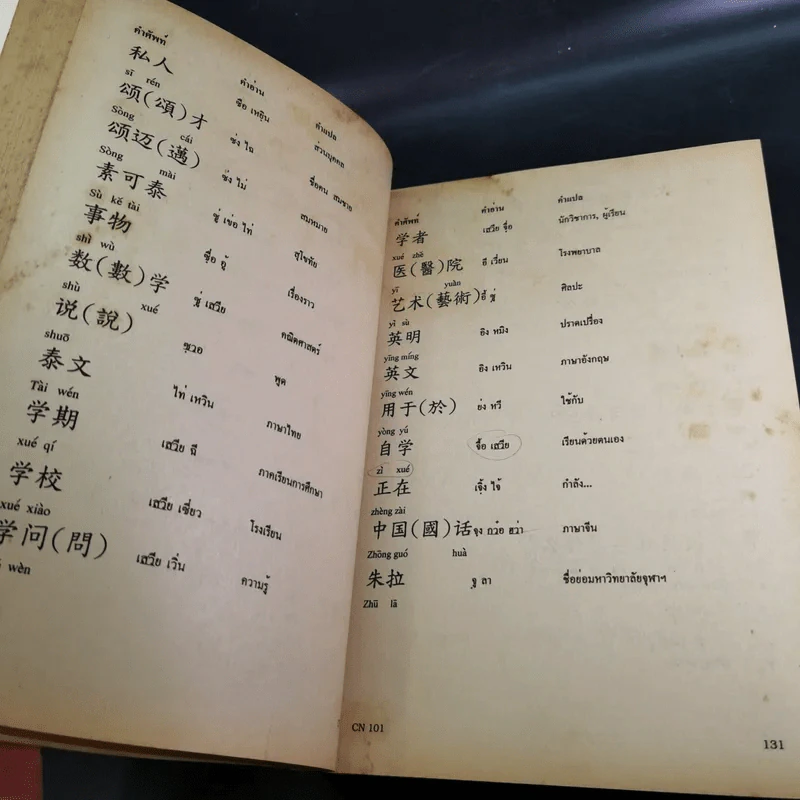 คำศัพท์ คำอ่าน คำแปล
私人 ซือ เหยิน ส่วนบุคคล
sī rén
颂(頌)才 ซ่ง ไถ ชื่อคน สมชาย
Sòng cái
颂迈(邁) ซ่ง ไม่ สมหมาย
Sòng mài
素可泰 ซู่ เข่อ ไท่ สุโขทัย
Sù kě tài
事物 ซื่อ อู้ เรื่องราว
shì wù
数(數)学 ซู่ เสวีย คณิตศาสตร์
shù xué
说(說) ซวอ พูด
shuō
泰文 ไท่ เหวิน ภาษาไทย
Tài wén
学期 เสวีย ฉี ภาคเรียนการศึกษา
xué qí
学校 เสวีย เซี่ยว โรงเรียน
xué xiào
学问(問) เสวีย เวิ่น ความรู้
wèn
คำศัพท์ คำอ่าน คำแปล
学者 เสวีย จื่อ นักวิชาการ, ผู้เรียน
xué zhě
医(醫)院 อี เวี่ยน โรงพยาบาล
yī yuàn
艺术(藝術) อี้ ซู่ ศิลปะ
yì sù
英明 อิง หมิง ปราดเปรื่อง
yīng míng
英文 อิง เหวิน ภาษาอังกฤษ
yīng wén
用于(於) ย่ง หวี ใช้กับ
yòng yú
自学 จื้อ เสวีย เรียนด้วยตนเอง
zì xué
正在 เจิ้ง ไจ้ กำลัง...
zhèng zài
中国(國)话 จุง กว๋อ ฮว่า ภาษาจีน
Zhōng guó huà
朱拉 จู ลา ชื่อย่อมหาวิทยาลัยจุฬาฯ
Zhū lā
CN 101
131